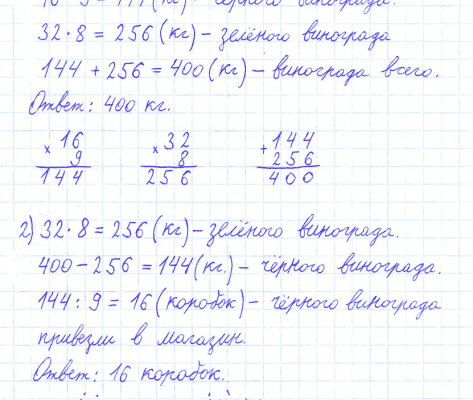 16 · 9 = 144 (кг) – чёрного винограда.
32 · 8 = 256 (кг) – зелёного винограда
144 + 256 = 400 (кг) – винограда всего.
Ответ: 400 кг.
× 16 × 32 + 144
9 8 256
144 256 400
2) 32 · 8 = 256 (кг) – зелёного винограда.
400 – 256 = 144 (кг.) – чёрного винограда.
144 : 9 = 16 (коробок) – чёрного винограда
привезли в магазин.
Ответ: 16 коробок.